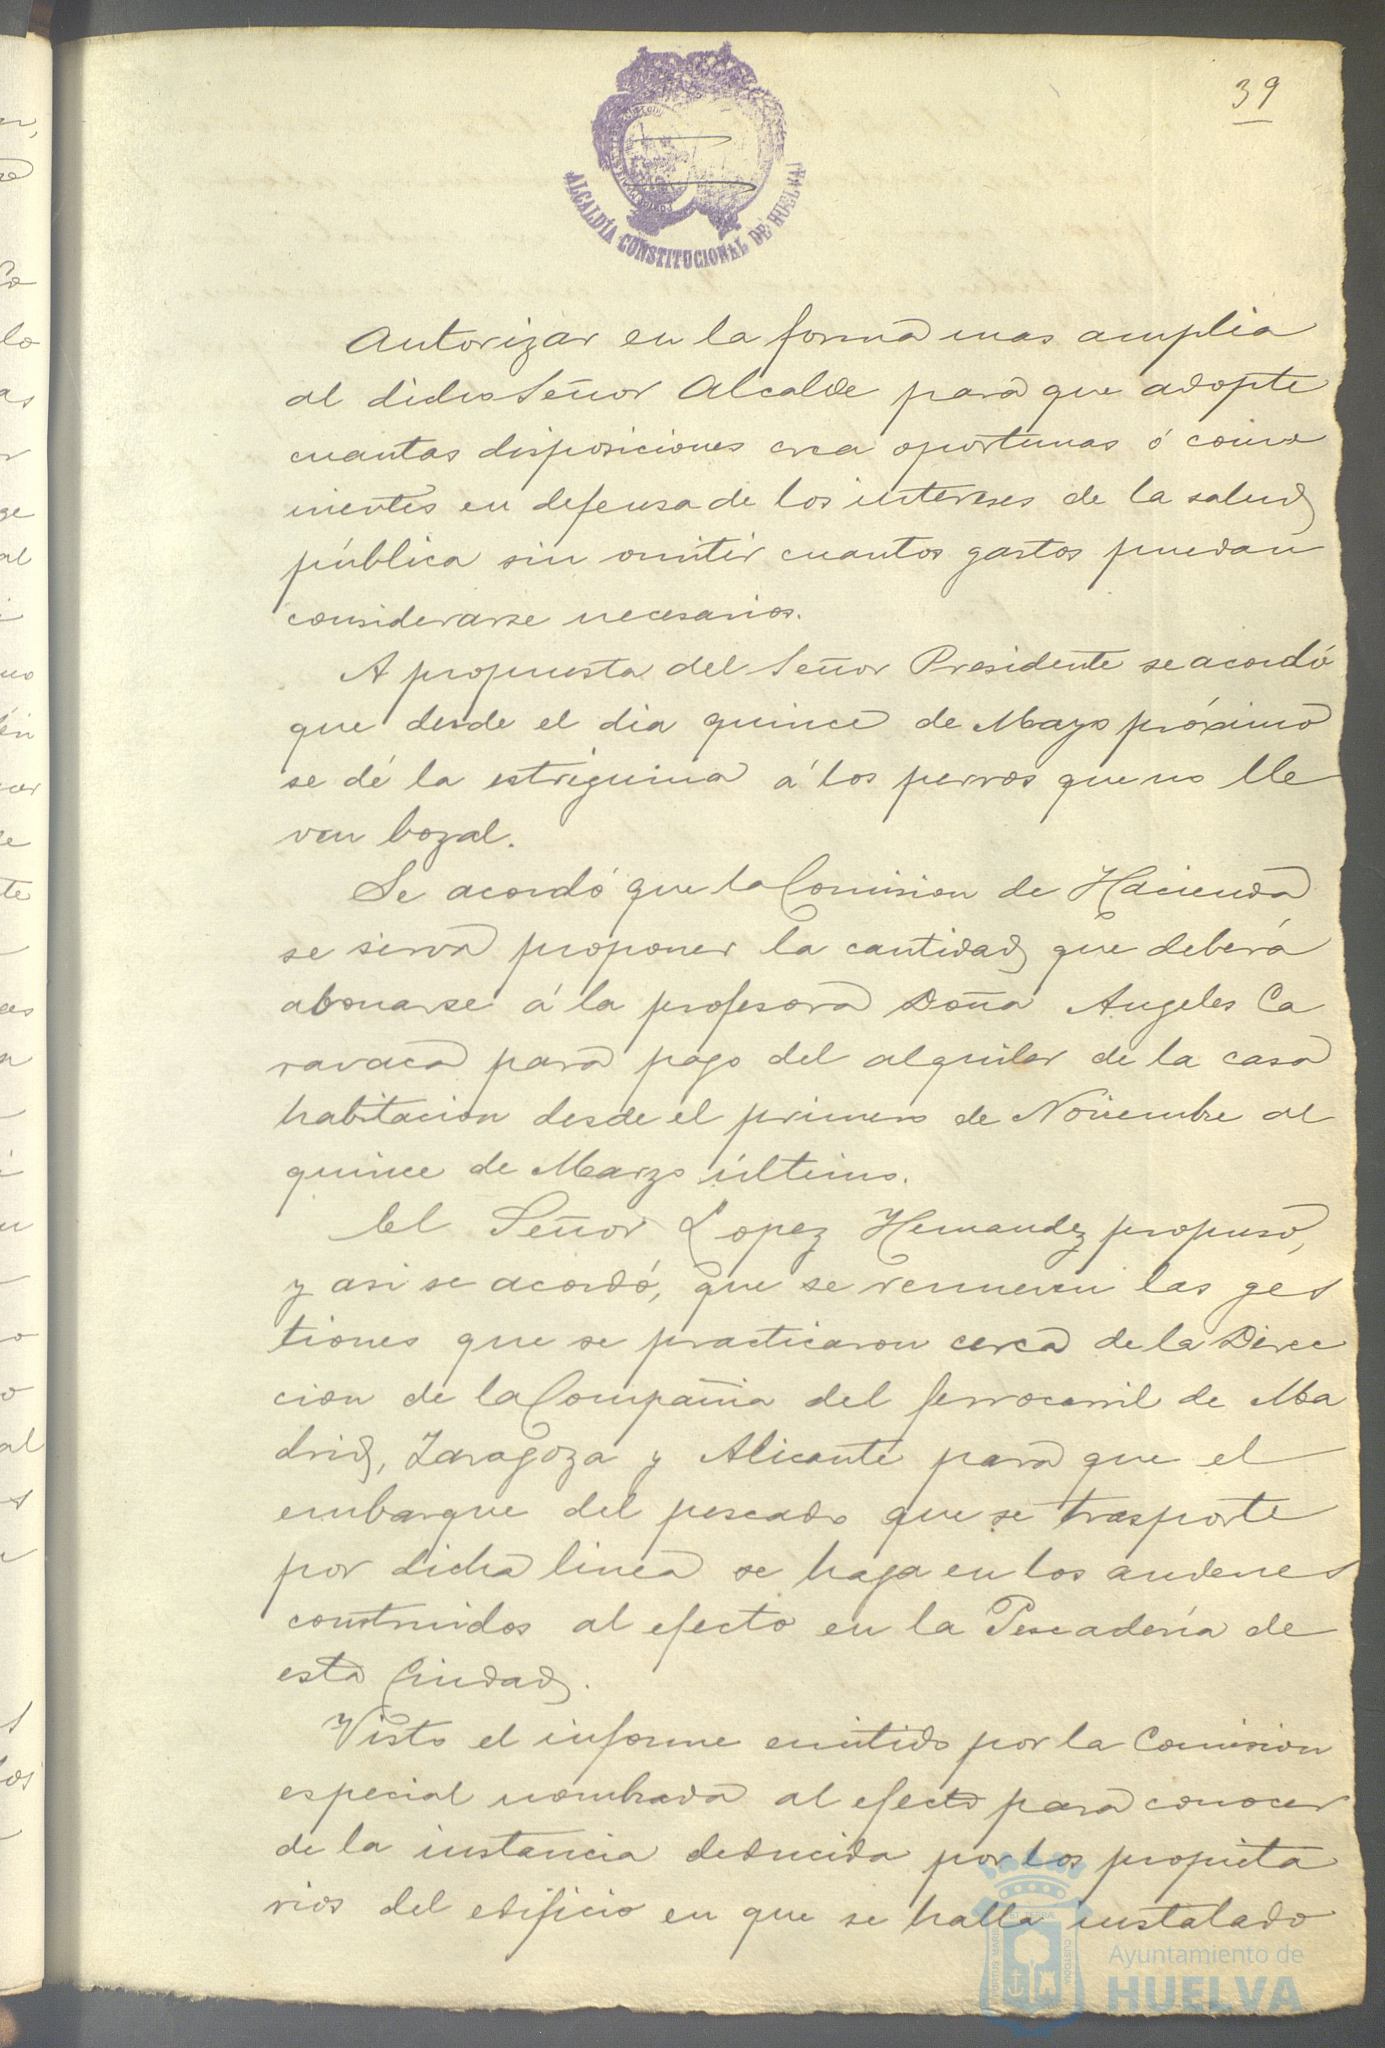 39
ALCALDÍA CONSTITUCIONAL DE HUELVA
Autorizar en la forma mas amplia
al dicho Señor Alcalde para que adopte
cuantas disposiciones crea oportunas ó conve
nientes en defensa de los intereses de la salud
pública sin omitir cuantos gastos puedan
considerarse necesarios.
A propuesta del Señor Presidente se acordó
que desde el dia quince de Mayo próximo
se dé la estriguina á los perros que no lle
ven bozal.
Se acordó que la Comision de Hacienda
se sirva proponer la cantidad que deberá
abonarse á la profesora Doña Angeles Ca
ravaca para pago del alquiler de la casa
habitacion desde el primero de Noviembre al
quince de Marzo último.
El Señor Lopez Hernandez propuso,
y asi se acordó, que se renueven las ges
tiones que se practicaron cerca de la Direc
cion de la Compañia del ferrocarril de Ma
drid, Zaragoza y Alicante para que el
embarque del pescado que se trasporte
por dicha linea se haga en los andenes
construidos al efecto en la Pescadería de
esta Ciudad.
Visto el informe emitido por la Comision
especial nombrada al efecto para conocer
de la instancia deducida por los propieta
rios del edificio en que se halla instalado
Ayuntamiento de
HUELVA